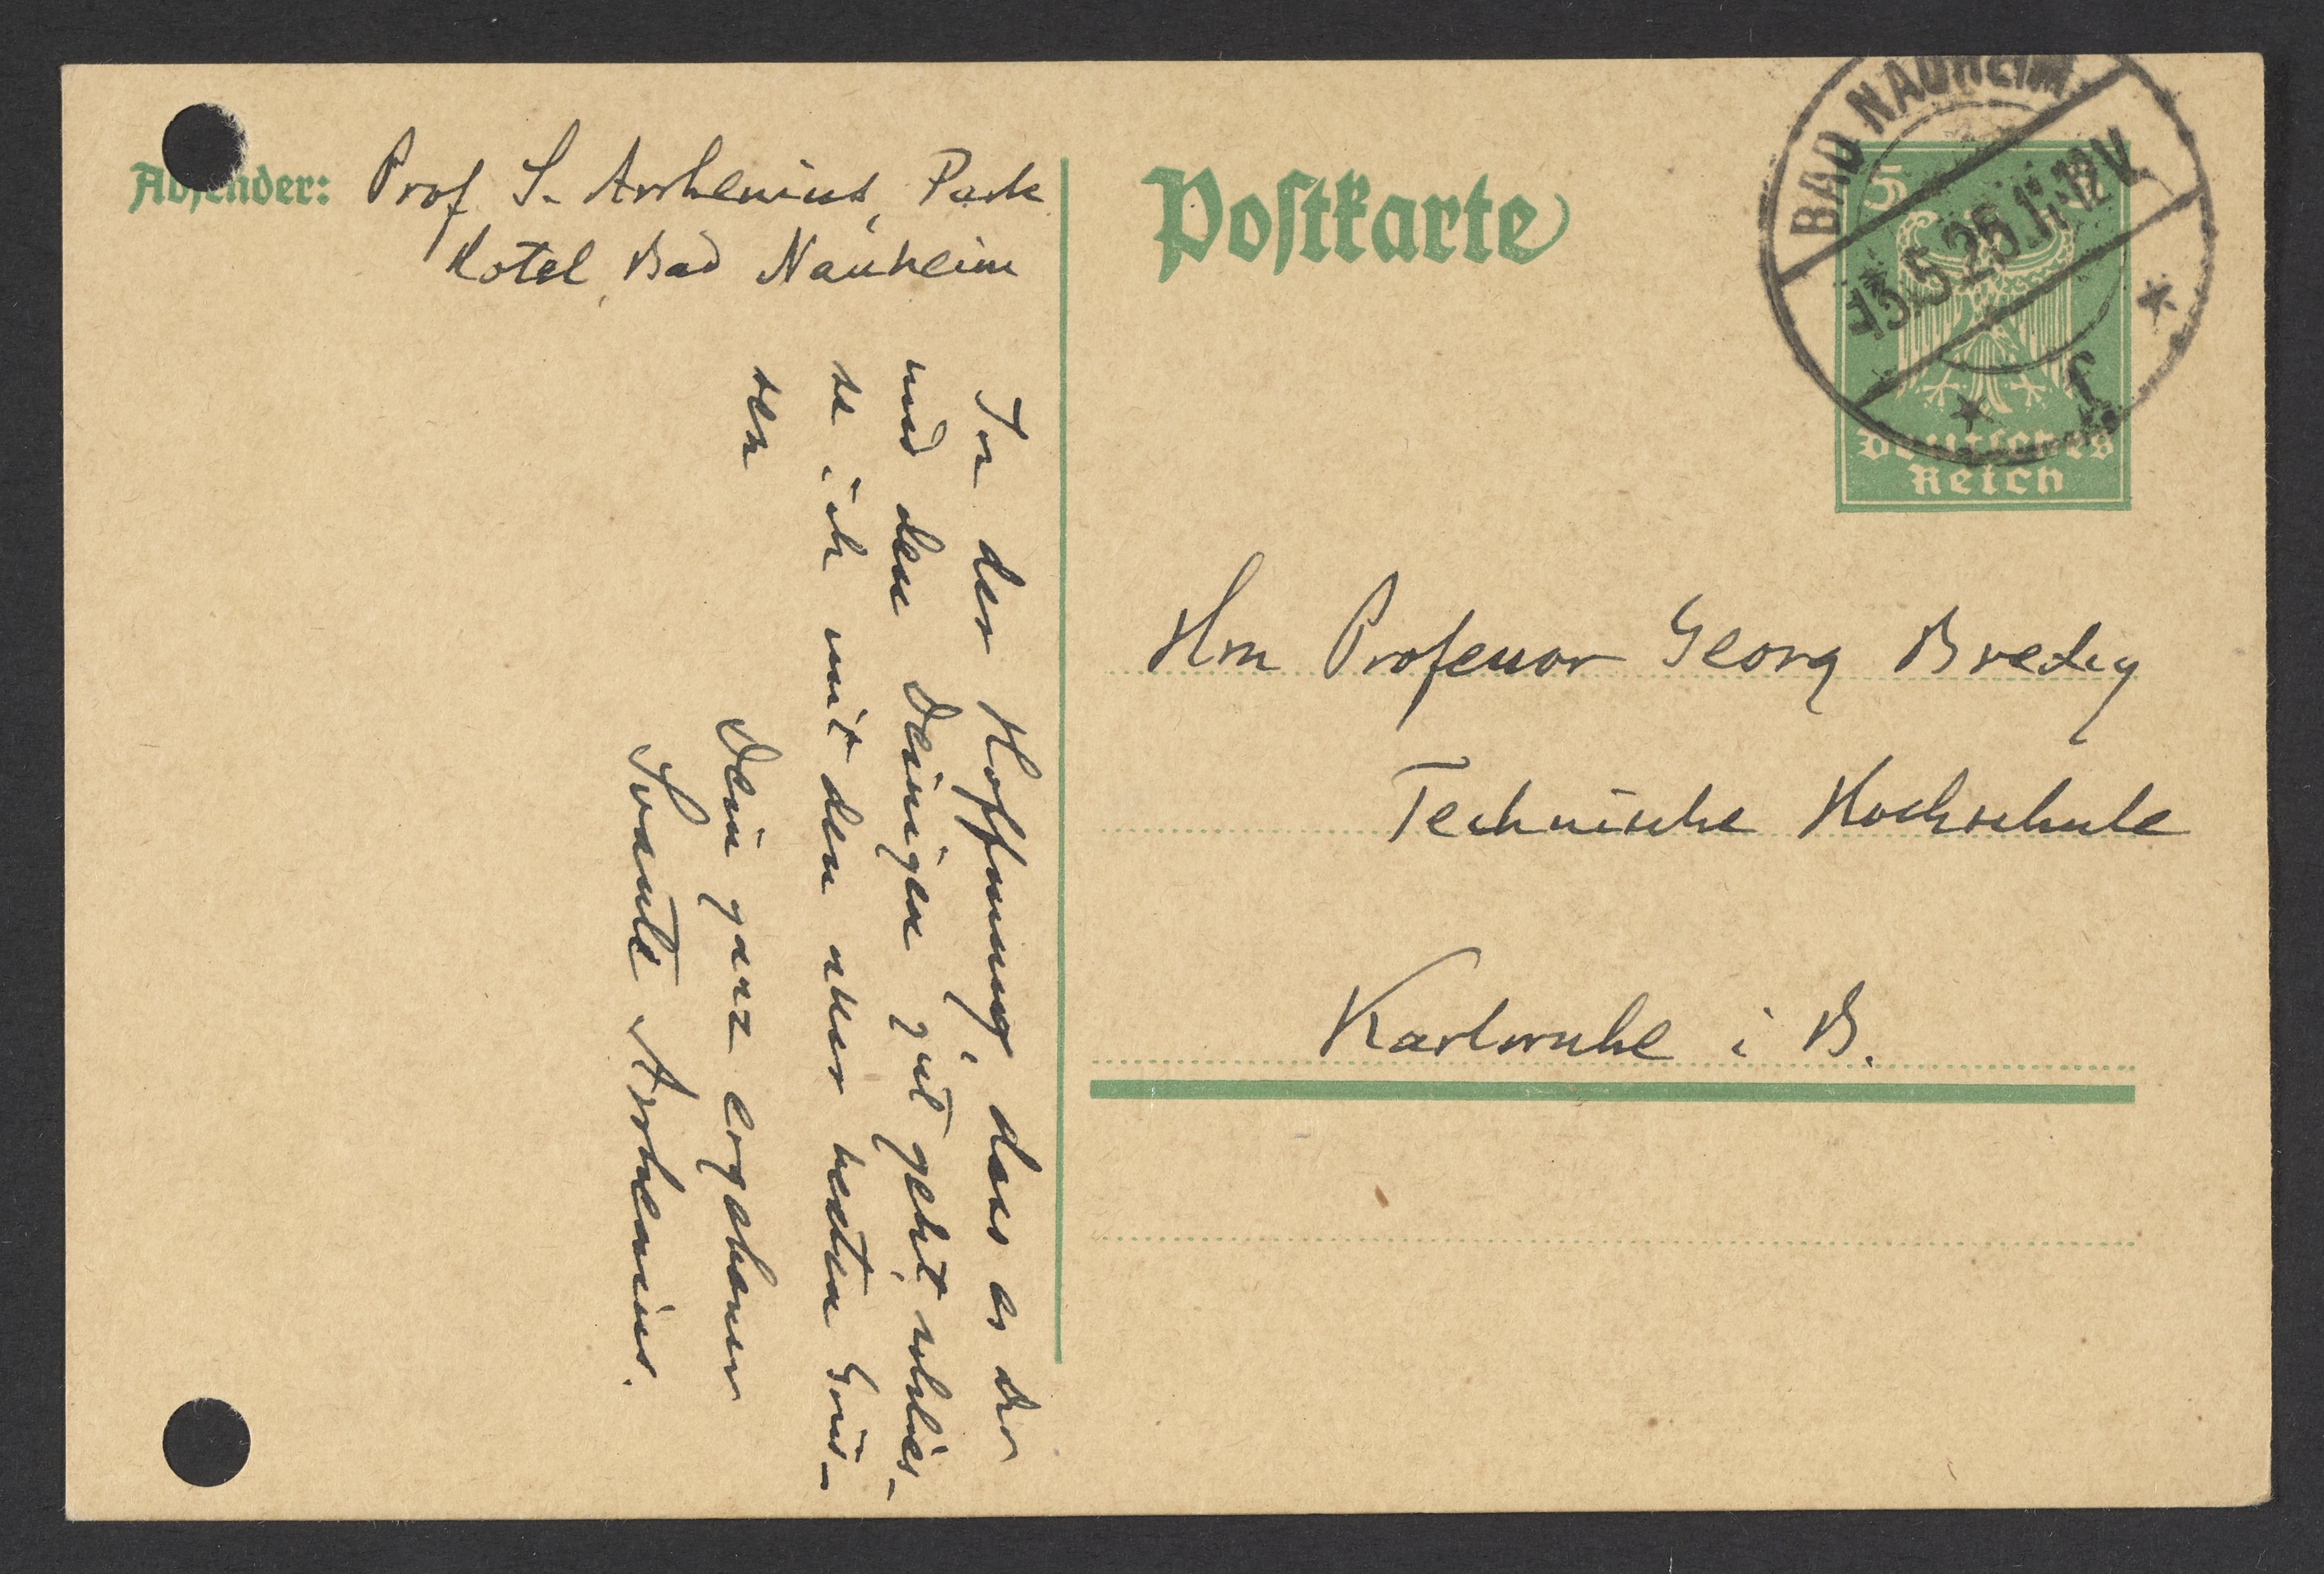 Absender: Prof S. Arrhenius, Park
Hotel, Bad Nauheim
Postkarte
BAD NAUHEIM
13.5.25.11-12V.
5
Deutsches
Reich
Hrn Professor Georg Bredig
Technische Hochschule
Karlsruhe i B.
In der Hoffnung, dass es Dir
und den Deinigen gut geht, schlies-
se ich mit den aller besten Grüs-
sen
Dein ganz ergebener
Svante Arrhenius.